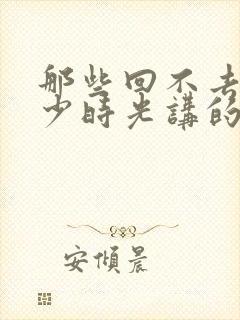 那些回不去
少時光講的
安傾晨